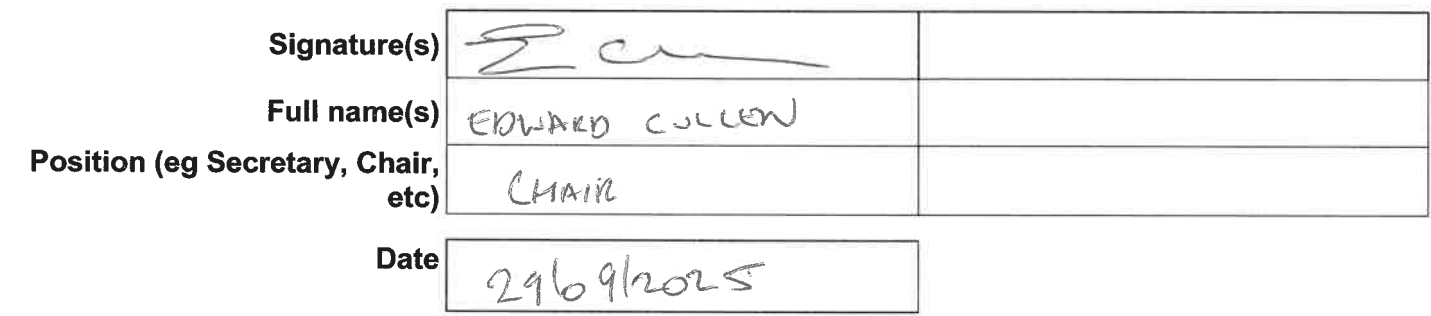 Signature(s) E Cu
Full name(s) EDWARD CULLEN
Position (eg Secretary, Chair,
etc) CHAIR
Date 29/09/2025